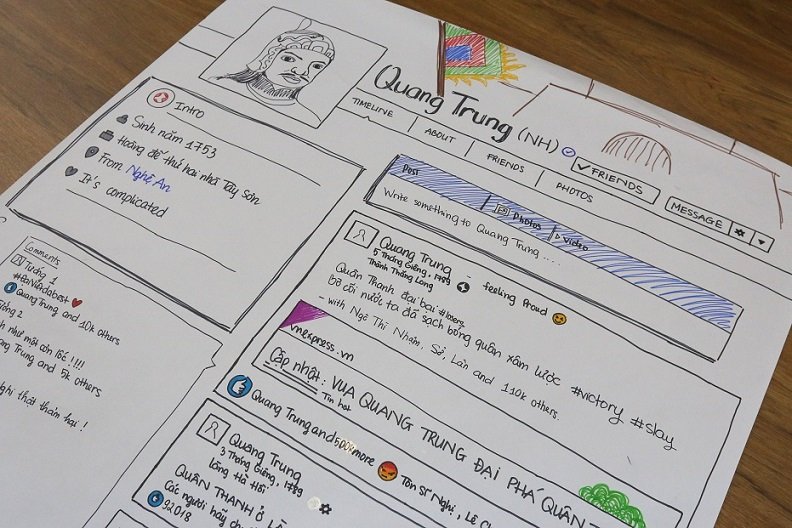 Quang Trung (NH)
TIMELINE
ABOUT
FRIENDS
PHOTOS
✓ FRIENDS
MESSAGE
Intro
Sinh năm 1753
Hoàng đế thứ hai nhà Tây Sơn
From Nghệ An
It's complicated
Post
Photos
Video
Write something to Quang Trung ....
Quang Trung - feeling proud
5 Tháng Giêng, 1789
Thành Thăng Long
Quân Thanh đại bại #losers
bờ cõi nước ta đã sạch bóng quân xâm lược #victory #slay
- with Ngô Thì Nhậm, Sở, Lân and 110k others.
vnexpress.vn
Cập nhật: VUA QUANG TRUNG ĐẠI PHÁ QUÂN
Tin hot
Quang Trung and 5,008 more
Tôn Sĩ Nghị, Lê
Quang Trung
3 Tháng Giêng, 1789
Làng Hà Hồi
QUÂN THANH Ở
Các người hãy
92018
Comments
Tướng 1
Quang Trung and 10k others
2
như một cơn lốc!!!!
Trung and 5k others
thật thảm hại!